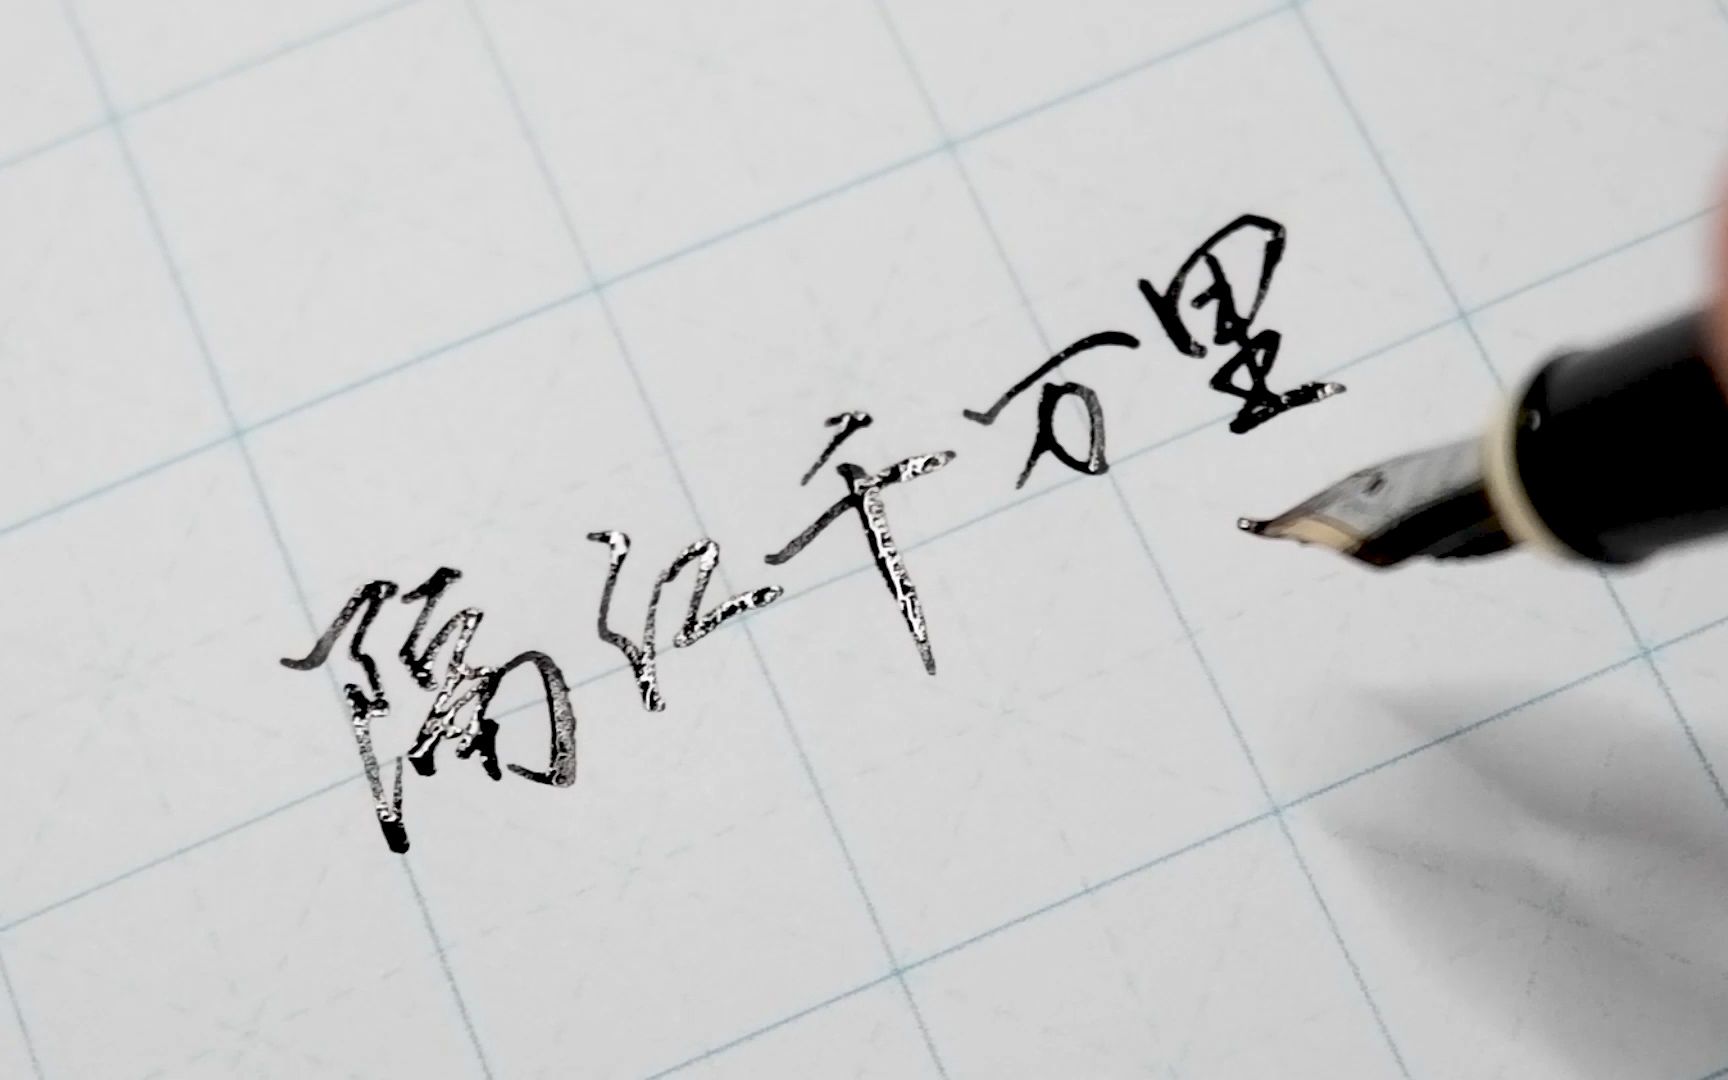 隔江千万里